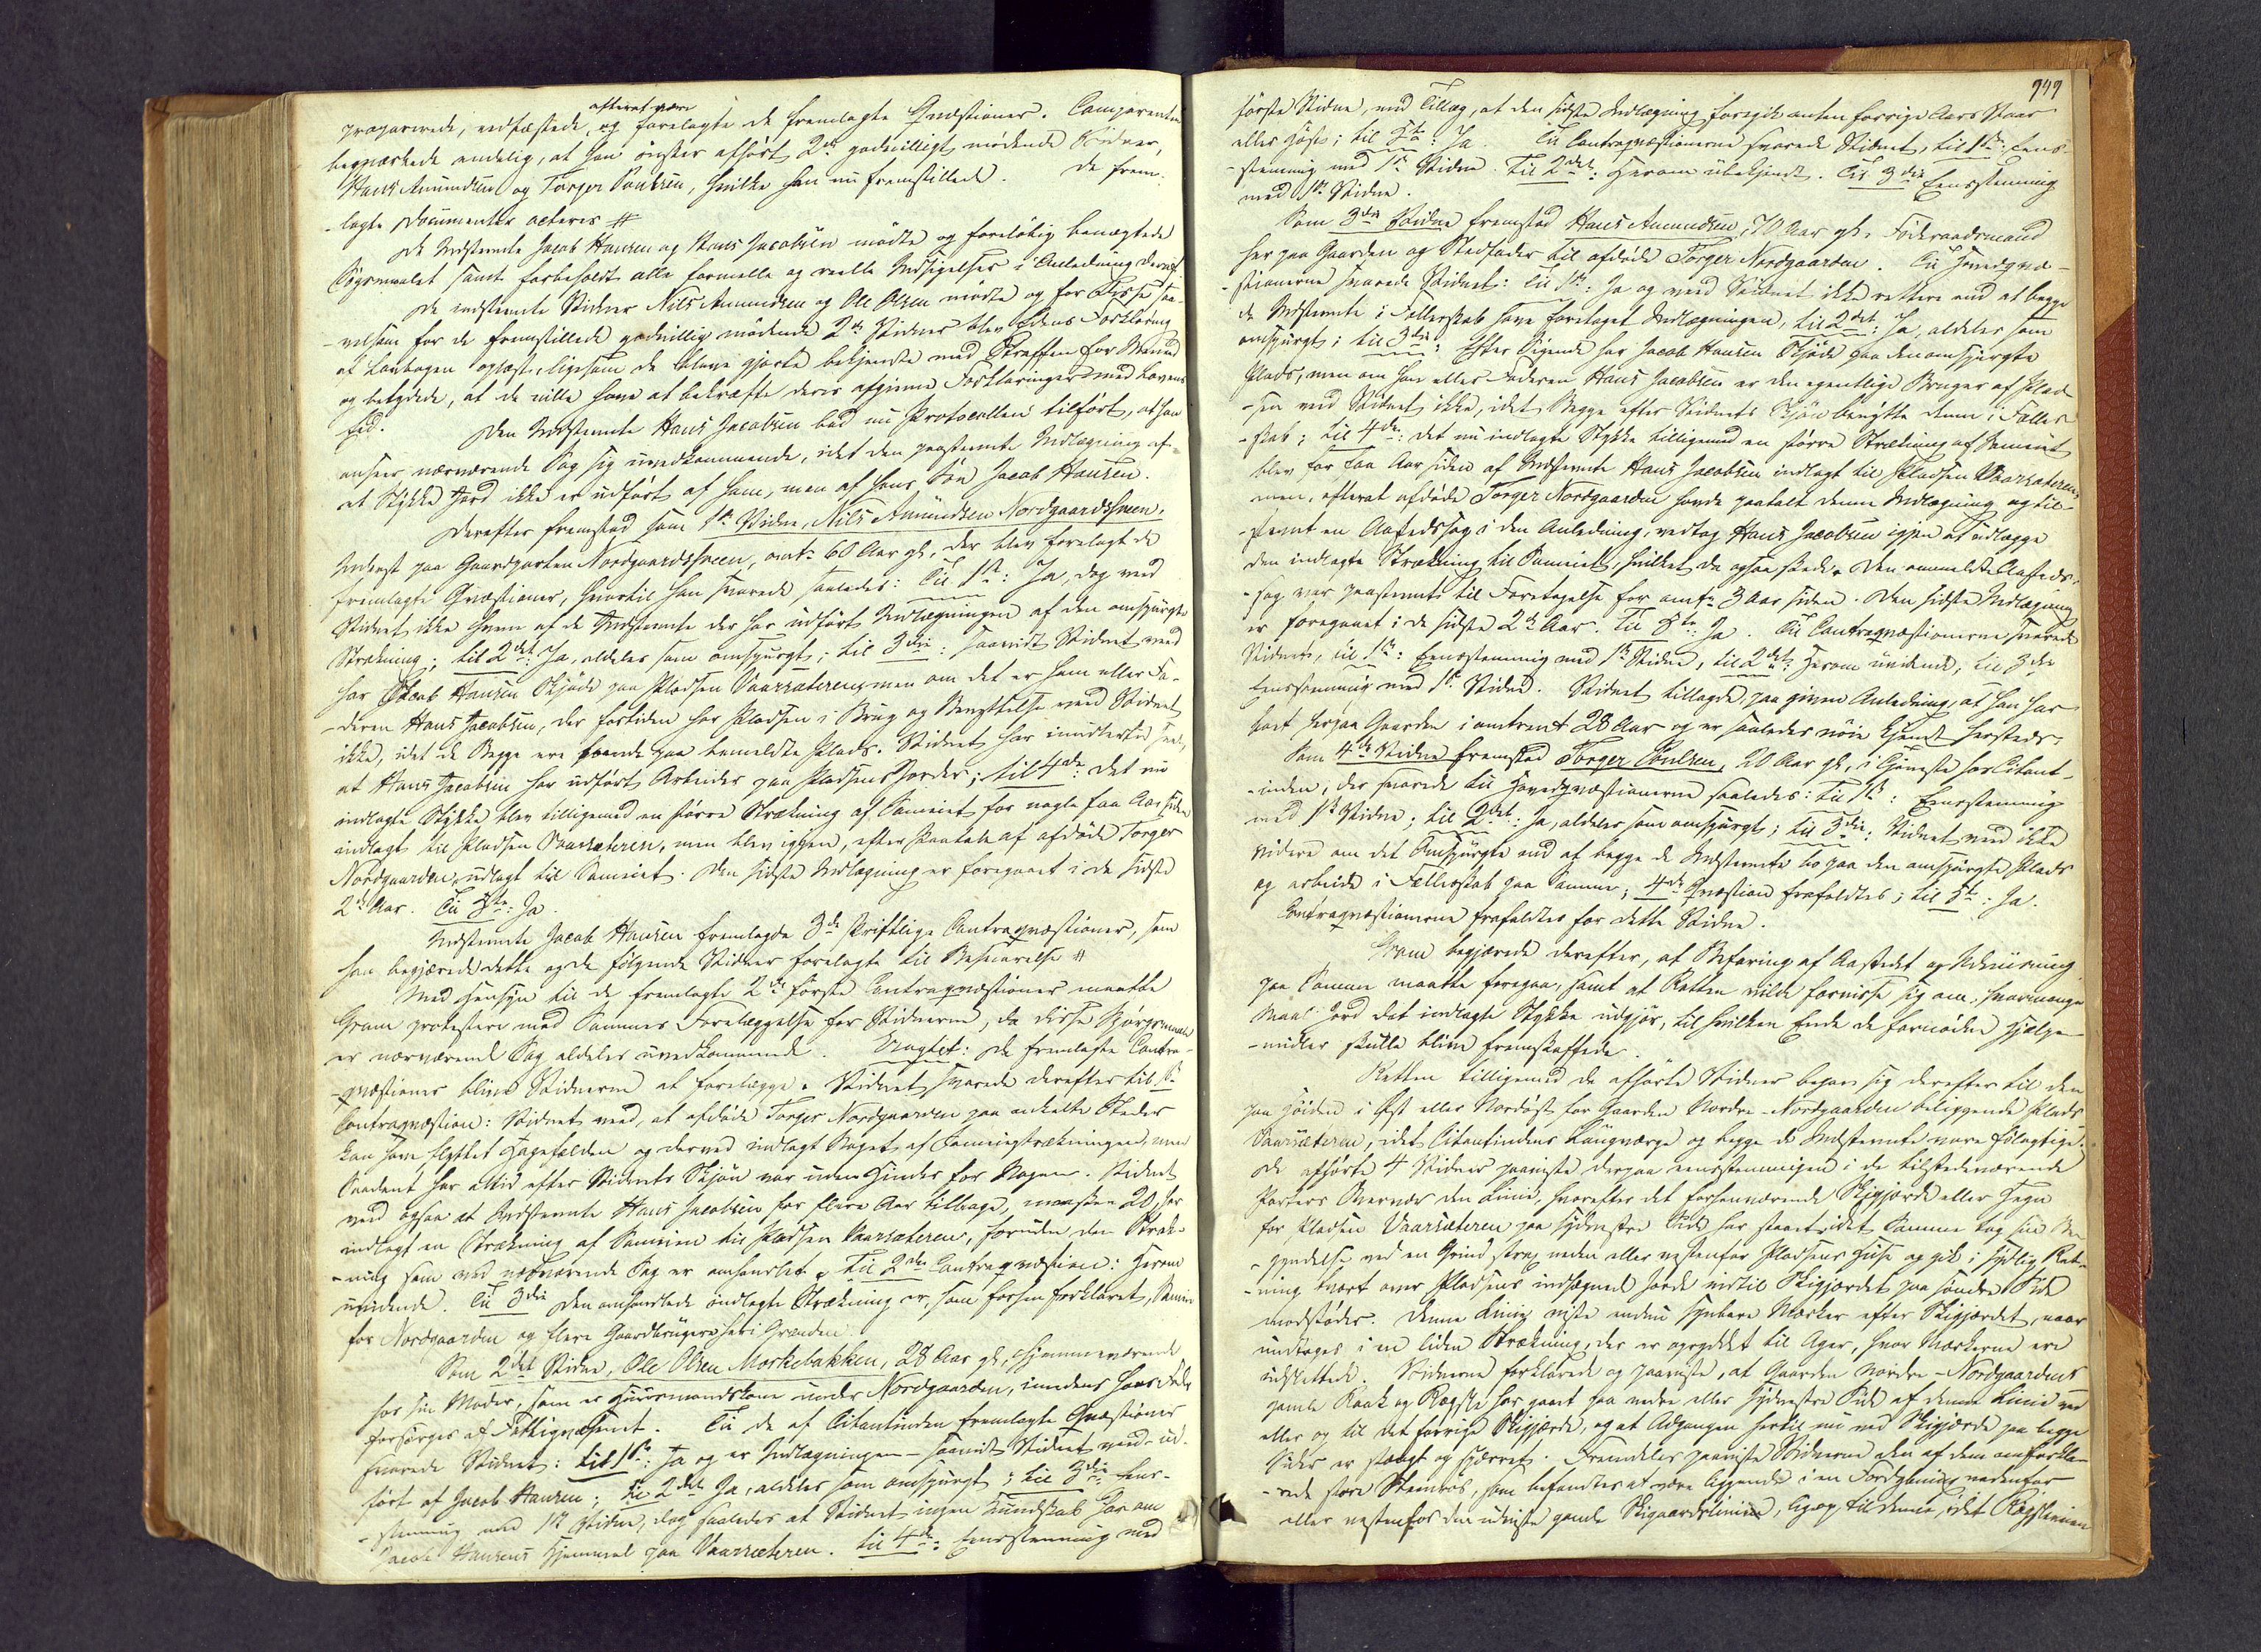 afteret være
proponerede, vedhæftede, og forelagte de fremlagte Qvæstioner. Comparenten
bemærkede endelig, at han ønsker afhørt 2de godvilligt mødende Vidner,
Hans Amundsen og Torger Poulsen, hvilke han nu fremstillede. De frem-
lagte Documenter acteres #
De Indstevnte Jacob Hansen og Hans Jacobsen mødte og foreløbig benægtede
Søgsmaalet samt forbeholdt alle formelle og reelle Indsigelser i Anledning deraf.
De indstevnte Vidner Nils Amundsen og Ole Olsen mødte og for Disse saa-
velsom for de fremstillede godvillig mødende 2de Vidner blev Edens Forklaring
af Lovbogen oplæst, ligesom de bleve gjorte bekjendte med Straffen for Meened
og betydede, at de ville have at bekræfte deres afgivne Forklaringer med Lovens
Eed. Den Indstevnte Hans Jacobsen bad nu Protocollen tilført, at han
anseer nærværende Sag sig uvedkommende, idet den paastevnte Indlægning af
et Stykke Jord ikke er udført af ham, men af hans Søn Jacob Hansen.
Derefter fremstod som 1ste Vidne, Nils Amundsen Nordgaardshuen,
Inderst paa Gaardparten Nordgaardshueen, omtr 60 Aar gl., der blev forelagt de
fremlagte Qvæstioner, hvortil han svarede saaledes: Til 1ste: Ja, dog veed
Vidnet ikke hvem af de Indstevnte der har udført Indlægningen af den omspurgte
Strækning; til 2det: Ja, aldeles som omspurgt; til 3die: Saavidt Vidnet veed
har Jacob Hansen Skjøde paa Pladsen Vaarsæteren, men om det er ham eller Fa-
deren Hans Jacobsen, der fortiden har Pladsen i Brug og Benyttelse veed Vidnet
ikke, idet de Begge ere boende paa bemeldte Plads. Vidnet har imidlertid seet,
at Hans Jacobsen har udført Arbeider paa Pladsens Jorder; til 4de: Det nu
indlagte Stykke blev tilligemed en større Strækning af Sameiet for nogle faa Aar siden
indlagt til Pladsen Vaarsæteren, men blev igjen, efter Paatale af afdøde Torger
Nordgaarden, udlagt til Sameiet. Den sidste Indlægning er foregaaet i de sidste
2de Aar. Til 5te: Ja.
Indstevnte Jacob Hansen fremlagde 3de skriftlige Contraqvæstioner, som
han begjærede dette og de følgende Vidner forelagte til Besvarelse #
Med Hensyn til de fremlagte 2de første Contraqvæstioner maatte
Gram protestere mod Sammes Forelæggelse for Vidnerne, da disse Spørgsmaale
er nærværende Sag aldeles uvedkommende. Eragtet: De fremlagte Contra-
qvæstioner blive Vidnerne at forelægge. Vidnet svarede derefter til 1ste
Contraqvæstion: Vidnet veed, at afdøde Torger Nordgaarden paa enkelte Steder
kan have flyttet Hagefælden og derved indlagt Noget af Sameiestrækningen, men
Saadant har altid efter Vidnets Skjøn var uden Hinder for Nogen. Vidnet
veed ogsaa at Indstevnte Hans Jacobsen for flere Aar tilbage, maaskee 20, har
indlagt en Strækning af Sameien til Pladsen Vaarsæteren, foruden den Stræk-
ning som ved nærværende Sag er omhandlet. Til 2den Contraqvæstion: Herom
uvidende. Til 3die Den omhandlede indlagte Strækning er, som forhen forklaret, Sameie
for Nordgaarden og flere Gaardbrugere her i Grænden.
Som 2det Vidne, Ole Olsen Morkebakken, 28 Aar gl., hjemmeværende
hos sin Moder, som er Huusmandskone under Nordgaarden, imedens hans Fader
forsørges af Fattigvæsenet. Til de af Citantinden fremlagte Qvæstioner
svarede Vidnet: til 1ste: Ja og er Indlægningen - saavidt Vidnet veed - ud-
ført af Jacob Hansen; til 2det Ja, aldeles som omspurgt; til 3die Eens-
stemmig med 1ste Vidne, dog saaledes at Vidnet ingen Kundskab har om
Jacob Hansens Hjemmel paa Vaarsæteren. til 4de: Eensstemmig med
949
første Vidne, med Tillæg, at den sidste Indlægning foregik enten forrige Aars Vaar
eller Høst; til 5te: Ja. Til Contraqvæstionerne svarede Vidnet, til 1ste: Eens-
stemmig med 1ste Vidne. Til 2det: Herom ubekjendt. Til 3die Eensstemmig
med 1ste Vidne.
Som 3die Vidne fremstod Hans Amundsen, 70 Aar gl. Føderaadsmand
her paa Gaarden og Stedfader til afdøde Torger Nordgaarden. Til Hovedqvæ-
stionerne svarede Vidnet: til 1ste: Ja og veed Vidnet ikke rettere end at begge
de Indstevnte i Fællesskab have foretaget Indlægningen, til 2det: Ja, aldeles som
omspurgt; til 3die: Efter Sigende har Jacob Hansen Skjøde paa den omspurgte
Plads, men om han eller Faderen Hans Jacobsen er den egentlige Bruger af Plad-
sen veed Vidnet ikke, idet Begge efter Vidnets Skjøn benytte denne i Fælles-
skab; til 4de: Det nu indlagte Stykke tilligemed en større Strækning af Sameiet
blev for faa Aar siden af Indstevnte Hans Jacobsen indlagt til Pladsen Vaarsæteren,
men, efterat afdøde Torger Nordgaarden havde paatalt denne Indlægning og til-
stevnt en Aastedssag i den Anledning, vedtog Hans Jacobsen igjen at udlægge
den indlagte Strækning til Sameiet, hvilket da ogsaa skede. Den ommeldte Aasteds-
sag var paastevnt til Foretagelse for omtr 3 Aar siden. Den sidste Indlægning
er foregaaet i de sidste 2de Aar. Til 5te: Ja. Til Contraqvæstionerne svarede
Vidnet, til 1ste: Eensstemmig med 1ste Vidne, til 2det: Herom uvidende, til 3die
Eensstemmig med 1ste Vidne. Vidnet tillagde, paa given Anledning, at han har
boet her paa Gaarden i omtrent 28 Aar og er saaledes nøie kjendt hersteds.
Som 4de Vidne fremstod Torger Poulsen, 20 Aar gl., i Tjeneste hos Citant-
inden, der svarede til Hovedqvæstionerne saaledes: til 1ste: Eensstemmig
med 1ste Vidne; til 2det: Ja, aldeles som omspurgt; til 3die: Vidnet veed ikke
videre om det Omspurgte end at begge de Indstevnte bo paa den omspurgte Plads
og arbeide i Fællesskab paa Samme; 4de Qvæstion frafaldtes; til 5te: Ja.
Contraqvæstionerne frafaldtes for dette Vidne.
Gram begjærede derefter, at Befaring af Aastedet og Udviisning
paa Samme maatte foregaa, samt at Retten vilde forvisse sig om, hvormange
Maal Jord det indlagte Stykke udgjør, til hvilken Ende de fornødne Hjælpe-
midler skulle blive fremskaffede.
Retten tilligemed de afhørte Vidner begav sig derefter til den
paa Høiden i Øst eller Nordøst for Gaarden Nordre-Nordgaarden beliggende Plads
Vaarsæteren, idet Citantindens Laugværge og begge de Indstevnte vare følagtige.
De afhørte 4 Vidner paaviste derpaa eensstemmigen i de tilstedeværende
Parters Overvær den Linie, hvorefter det forhenværende Skigjærde eller Hegn
for Pladsen Vaarsæteren paa sydvestre Side har staaet, idet Samme tog sin Be-
gyndelse ved en Grind strax neden eller vestenfor Pladsens Huse og gik i sydlig Ret-
ning tvært over Pladsens indhegnede Jorde indtil Skigjærdet paa søndre Side
modstøder. Denne Linie viste endnu synbare Mærker efter Skigjærdet, naar
undtages i en liden Strækning, der er opryddet til Ager, hvor Mærkerne ere
udslettede. Vidnerne forklarede og paaviste, at Gaarden Nordre-Nordgaardens
gamle Raak og Rægste har gaaet paa nedre eller sydvestre Side af denne Linie ved
eller og til det forrige Skigjærde, og at Adgangen hertil nu ved Skigjærde paa begge
Sider er stængt og spærret. Fremdeles paaviste Vidnerne den af dem omforkla-
rede store Steenbøs, som befandtes at være liggende i en Fordybning nedenfor
eller vestenfor den udviste gamle Skigaardslinie, ligeop til denne, idet Rægsteinen